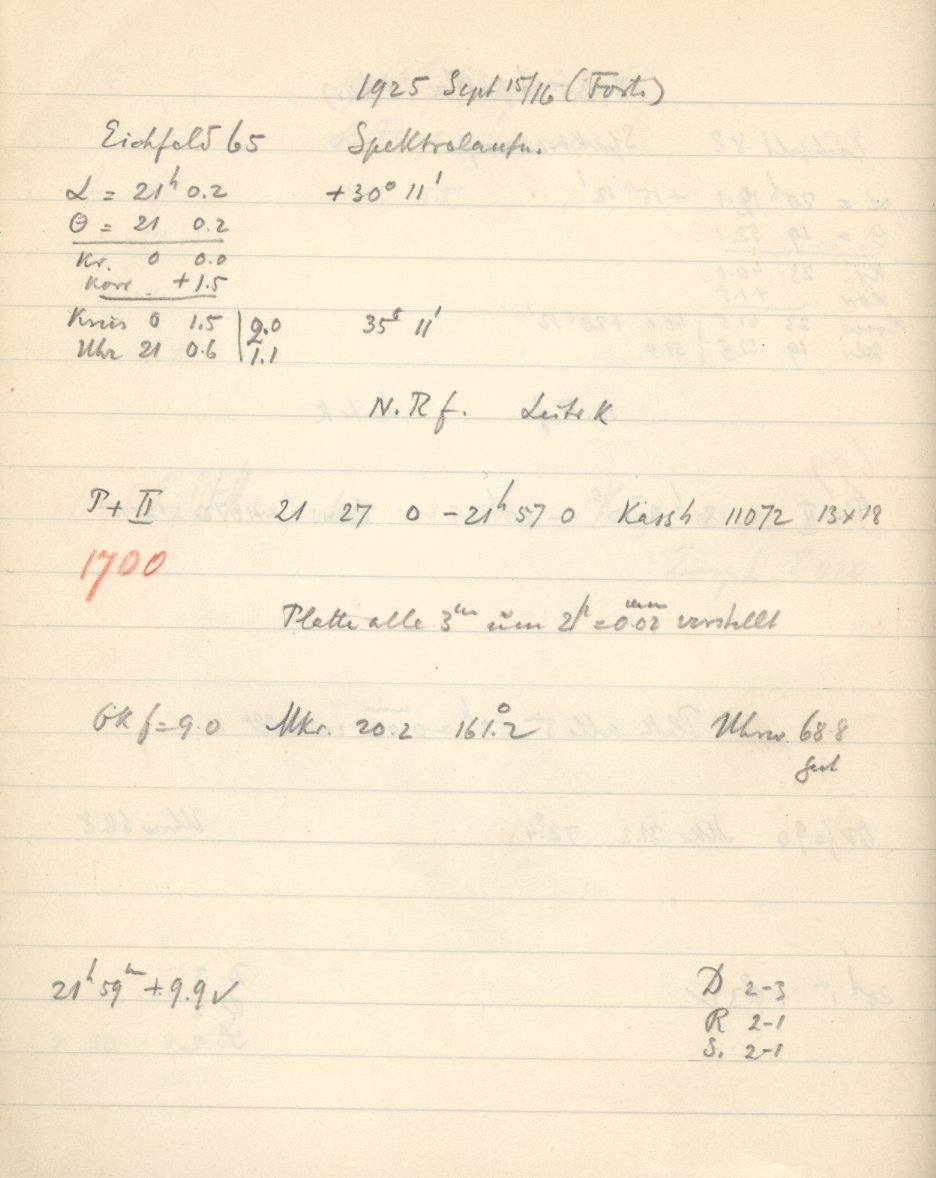 1925 Sept 15/16 (Forts)
Eichfeld 65 Spektralaufn.
α = 21h 0.2 +30° 11'
θ = 21 0.2
Kr. 0 0.0
Korr. +1.5
Kreis 0 1.5 | 9.0 35° 11'
Uhr 21 0.6 | 1.1
N. R f. Leitr K
P + II 21 27 0 – 21h 57 0 Kass h 11072 13x18
1700
Platte alle 3m um = 0.02 mm verstellt
GK f = 9.0 Mkr. 20.2 161.°2 Uhrw. 68.8
gut
21h 59m + 9.9 ✓ D 2-3
R 2-1
S. 2-1